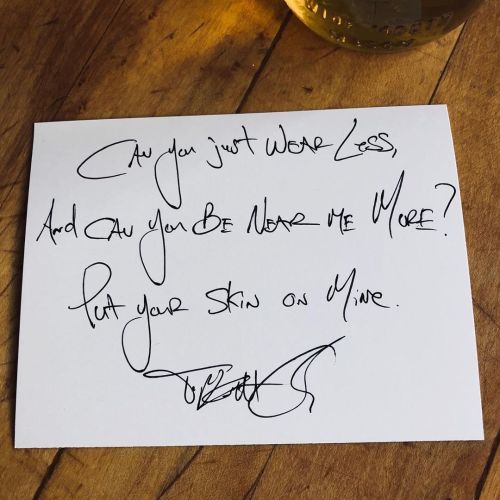 Can you just wear less,
And can you be near me more?
Put your skin on mine.